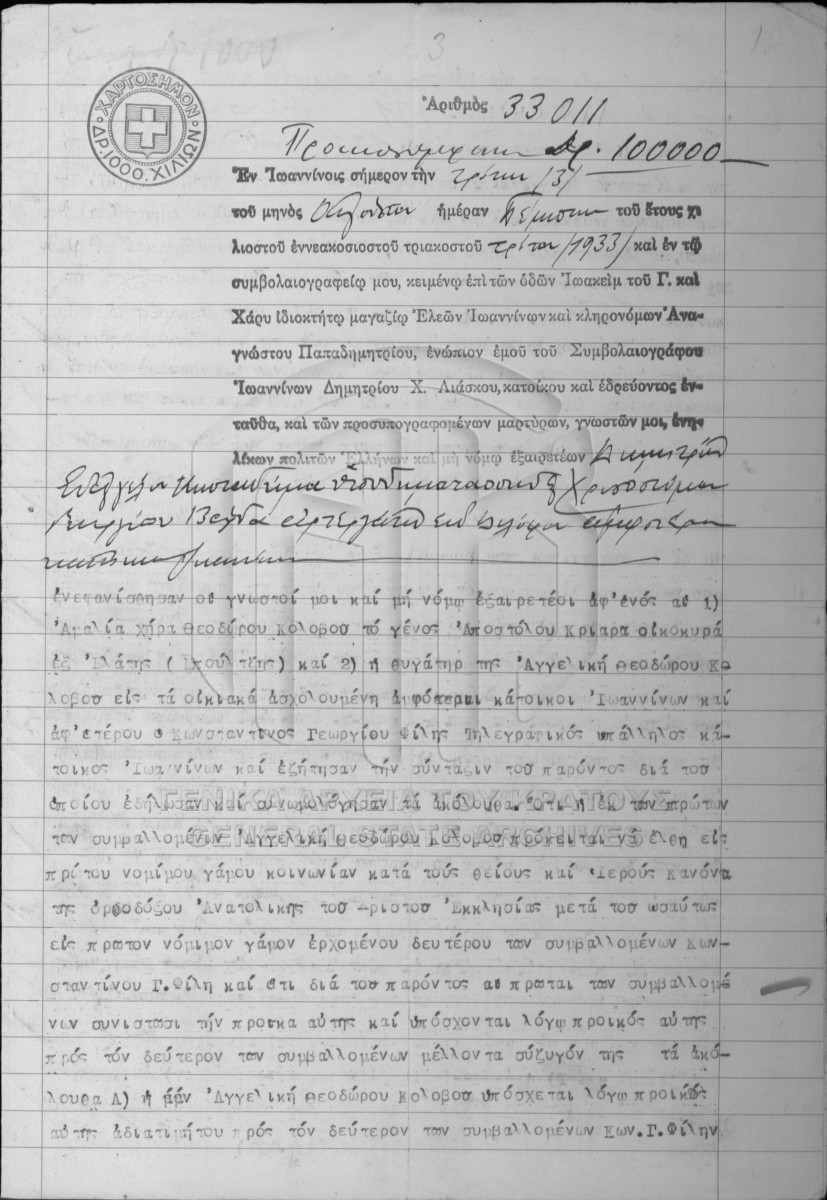 3
1
ΧΑΡΤΟΣΗΜΟΝ
ΔΡ. 1000. ΧΙΛΙΩΝ
Ἀριθμὸς 33011
Δρ. 100000
Ἐν Ἰωαννίνοις σήμερον τὴν τρίτην /3/
τοῦ μηνὸς ἡμέραν Πέμπτην τοῦ ἔτους χι
λιοστοῦ ἐννεακοσιοστοῦ τριακοστοῦ τρίτου /1933/ καὶ ἐν τῷ
συμβολαιογραφείῳ μου, κειμένῳ ἐπὶ τῶν ὁδῶν Ἰωακεὶμ τοῦ Γ. καὶ
Χάρυ ἰδιοκτήτῳ μαγαζίῳ Ἐλεῶν Ἰωαννίνων καὶ κληρονόμων Ἀνα-
γνώστου Παπαδημητρίου, ἐνώπιον ἐμοῦ τοῦ Συμβολαιογράφου
Ἰωαννίνων Δημητρίου Χ. Λιάσκου, κατοίκου καὶ ἑδρεύοντος ἐν-
ταῦθα, καὶ τῶν προσυπογραφομένων μαρτύρων, γνωστῶν μοι, ἐνη-
λίκων πολιτῶν Ἑλλήνων καὶ μὴ νόμῳ ἐξαιρετέων Δημητρίου
Χρυσοστόμου
Γεωργίου
ἐνεφανίσθησαν οἱ γνωστοί μοι καί μή νόμῳ ἐξαιρετέοι ἀφ'ἑνός αἱ 1)
Ἀμαλία χήρα Θεοδώρου Κολοβου τό γένος Ἀποστόλου Κριαρα οἰκοκυρά
ἐξ Ἐλάτης ( Μπούλτζης) καί 2) ἡ θυγάτηρ της Ἀγγελική Θεοδώρου Κο
λοβου εἰς τά οἰκιακά ἀσχολουμένη ἀμφότεραι κάτοικοι Ἰωαννίνων καί
ἀφ'ετέρου ο Κωνσταντινος Γεωργίου Φίλης Τηλεγραφικός υπάλληλος κά-
τοικος Ἰωαννίνων καί ἐζήτησαν τήν σύνταξιν του παρόντος διά του
ὁποίου ἐδήλωσαν καί συνωμολόγησαν τά ἀκόλουθα. Ὅτι ἡ ἐκ των πρώτων
των συμβαλλομένων Ἀγγελική Θεοδώρου Κολοβου πρόκειται νά ἔλθη εἰς
πρώτου νομίμου γάμου κοινωνίαν κατά τούς θείους καί Ἱερούς Κανόνα
της ὀρθοδόξου Ἀνατολικης του Χριστου Ἐκκλησίας μετά του ωσαύτως
εἰς πρωτον νόμιμον γάμον ἐρχομένου δευτέρου των συμβαλλομένων Κων-
σταντίνου Γ. Φίλη καί ὅτι διά του παρόντος αι πρωται των συμβαλλομέ
νων συνιστωσι τήν προικα αὐτης καί ὑπόσχονται λόγῳ προικός αὐτης
πρός τόν δεύτερον των συμβαλλομένων μέλλοντα σύζυγόν της τά ἀκό-
λουθα Α) ἡ μέν Ἀγγελική Θεοδώρου Κολοβου υπόσχεται λόγῳ προικός
αὐτης ἀδιατιμήτου πρός τόν δεύτερον των συμβαλλομένων Κων. Γ. Φίλην
ΓΕΝΙΚΑ ΑΡΧΕΙΑ ΤΟΥ ΚΡΑΤΟΥΣ
GENERAL STATE ARCHIVES